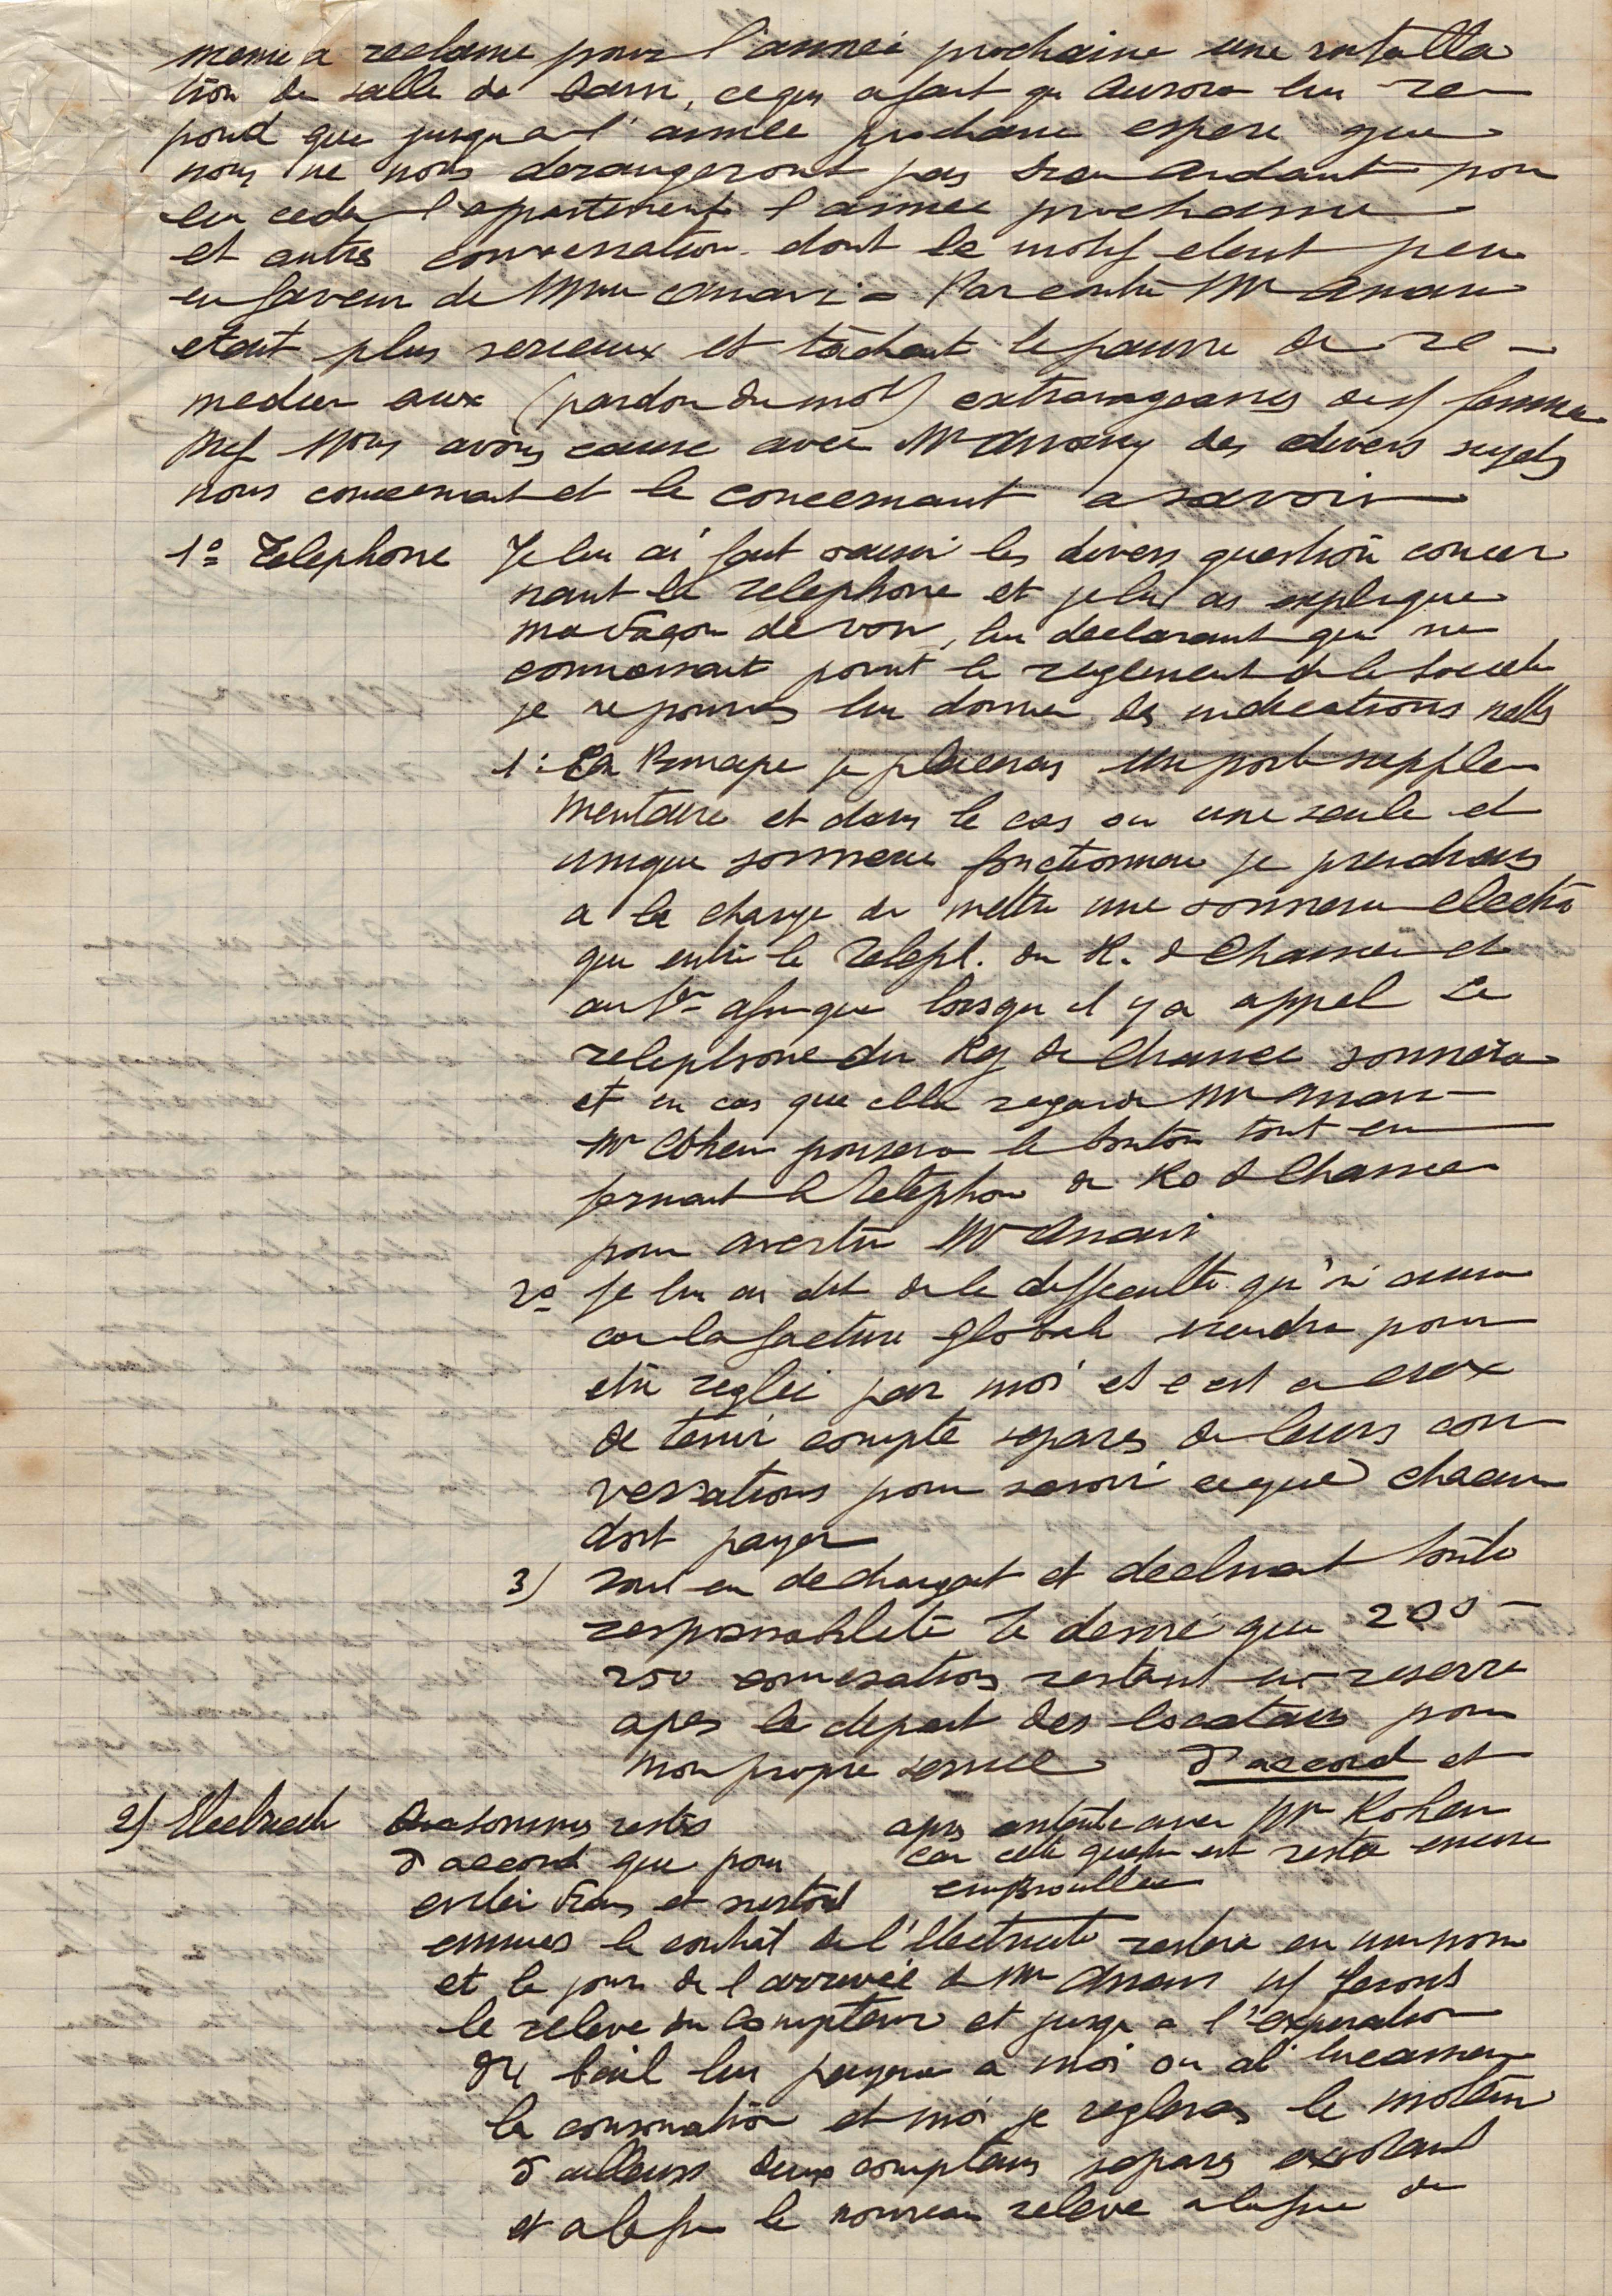 meme a reclame pour l'année prochaine une installa
tion de salle de bain, ce qui a fait qu Aurore lui re
pond que jusqu a l'année prochaine espere que
nous ne nous derangeront pas pour
leu ceder l'appartement l'année prochaine
et autres conversation dont le motif etent peu
en faveur de Mme Anavi = Par contre Mr Anavi
etait plus serieux et tâchait le pauvre de re -
medier aux (pardon du mot) extravagances de sf femme
Bref Nous avons cause avec Mr Anavy des divers sujets
nous concernant et le concernant a savoir
1º Telephone Je lui ai fait saisir les divers question concer
nant le telephone et je lui ai explique
ma façon de voir, lui declarant que ne
connaissant point le reglement de la Societe
je ne pourrais lui donner des indications nettes
1: En Principe je placerais un poste supple
mentaire et dans le cas ou une seule et
unique sonnerie fonctionnera je prendrais
a la charge de mettre une sonnerie electri
que entre le Teleph. du R. d Chaussee et
au 1er afin que lorsqu il y a appel le
telephone du Rez de Chaussee sonnera
et en cas que cella regarde Mr Anavi
Mr Cohen poussera le bouton tout en
fermant le telephone de Rd d Chaussee
pour avertir Mr Anavi
2º Je lui ai dit de la difficulté qu'il aura
car la facture globale viendra pour
etre reglée par moi et c est a eux
de tenir compte separes de leurs con
versations pour savoir ce que chacun
doit payer
3) tout en dechargeant et declinant toute
responsabilité Je desire que 200 -
250 conversations restent en reserve
apres le depart des locataires pour
mon propre service D'accord et
apres entente avec Mr Kohen
car cette question est restee encore
embrouillee
2) Electricite sommes restés
d accord que pour
eviter frais et surtout
ennuies le contrat de l'Electricite restera en mon nom
et le jour de l'arrivée de Mr Anavi ferons
le releve du Compteur et jusqu a l'expiration
du bail lui payera a moi ou
la consomation et moi je reglerai le moteur
d ailleurs deux compteurs separes existent
et a la fin le nouveau releve a la fin du